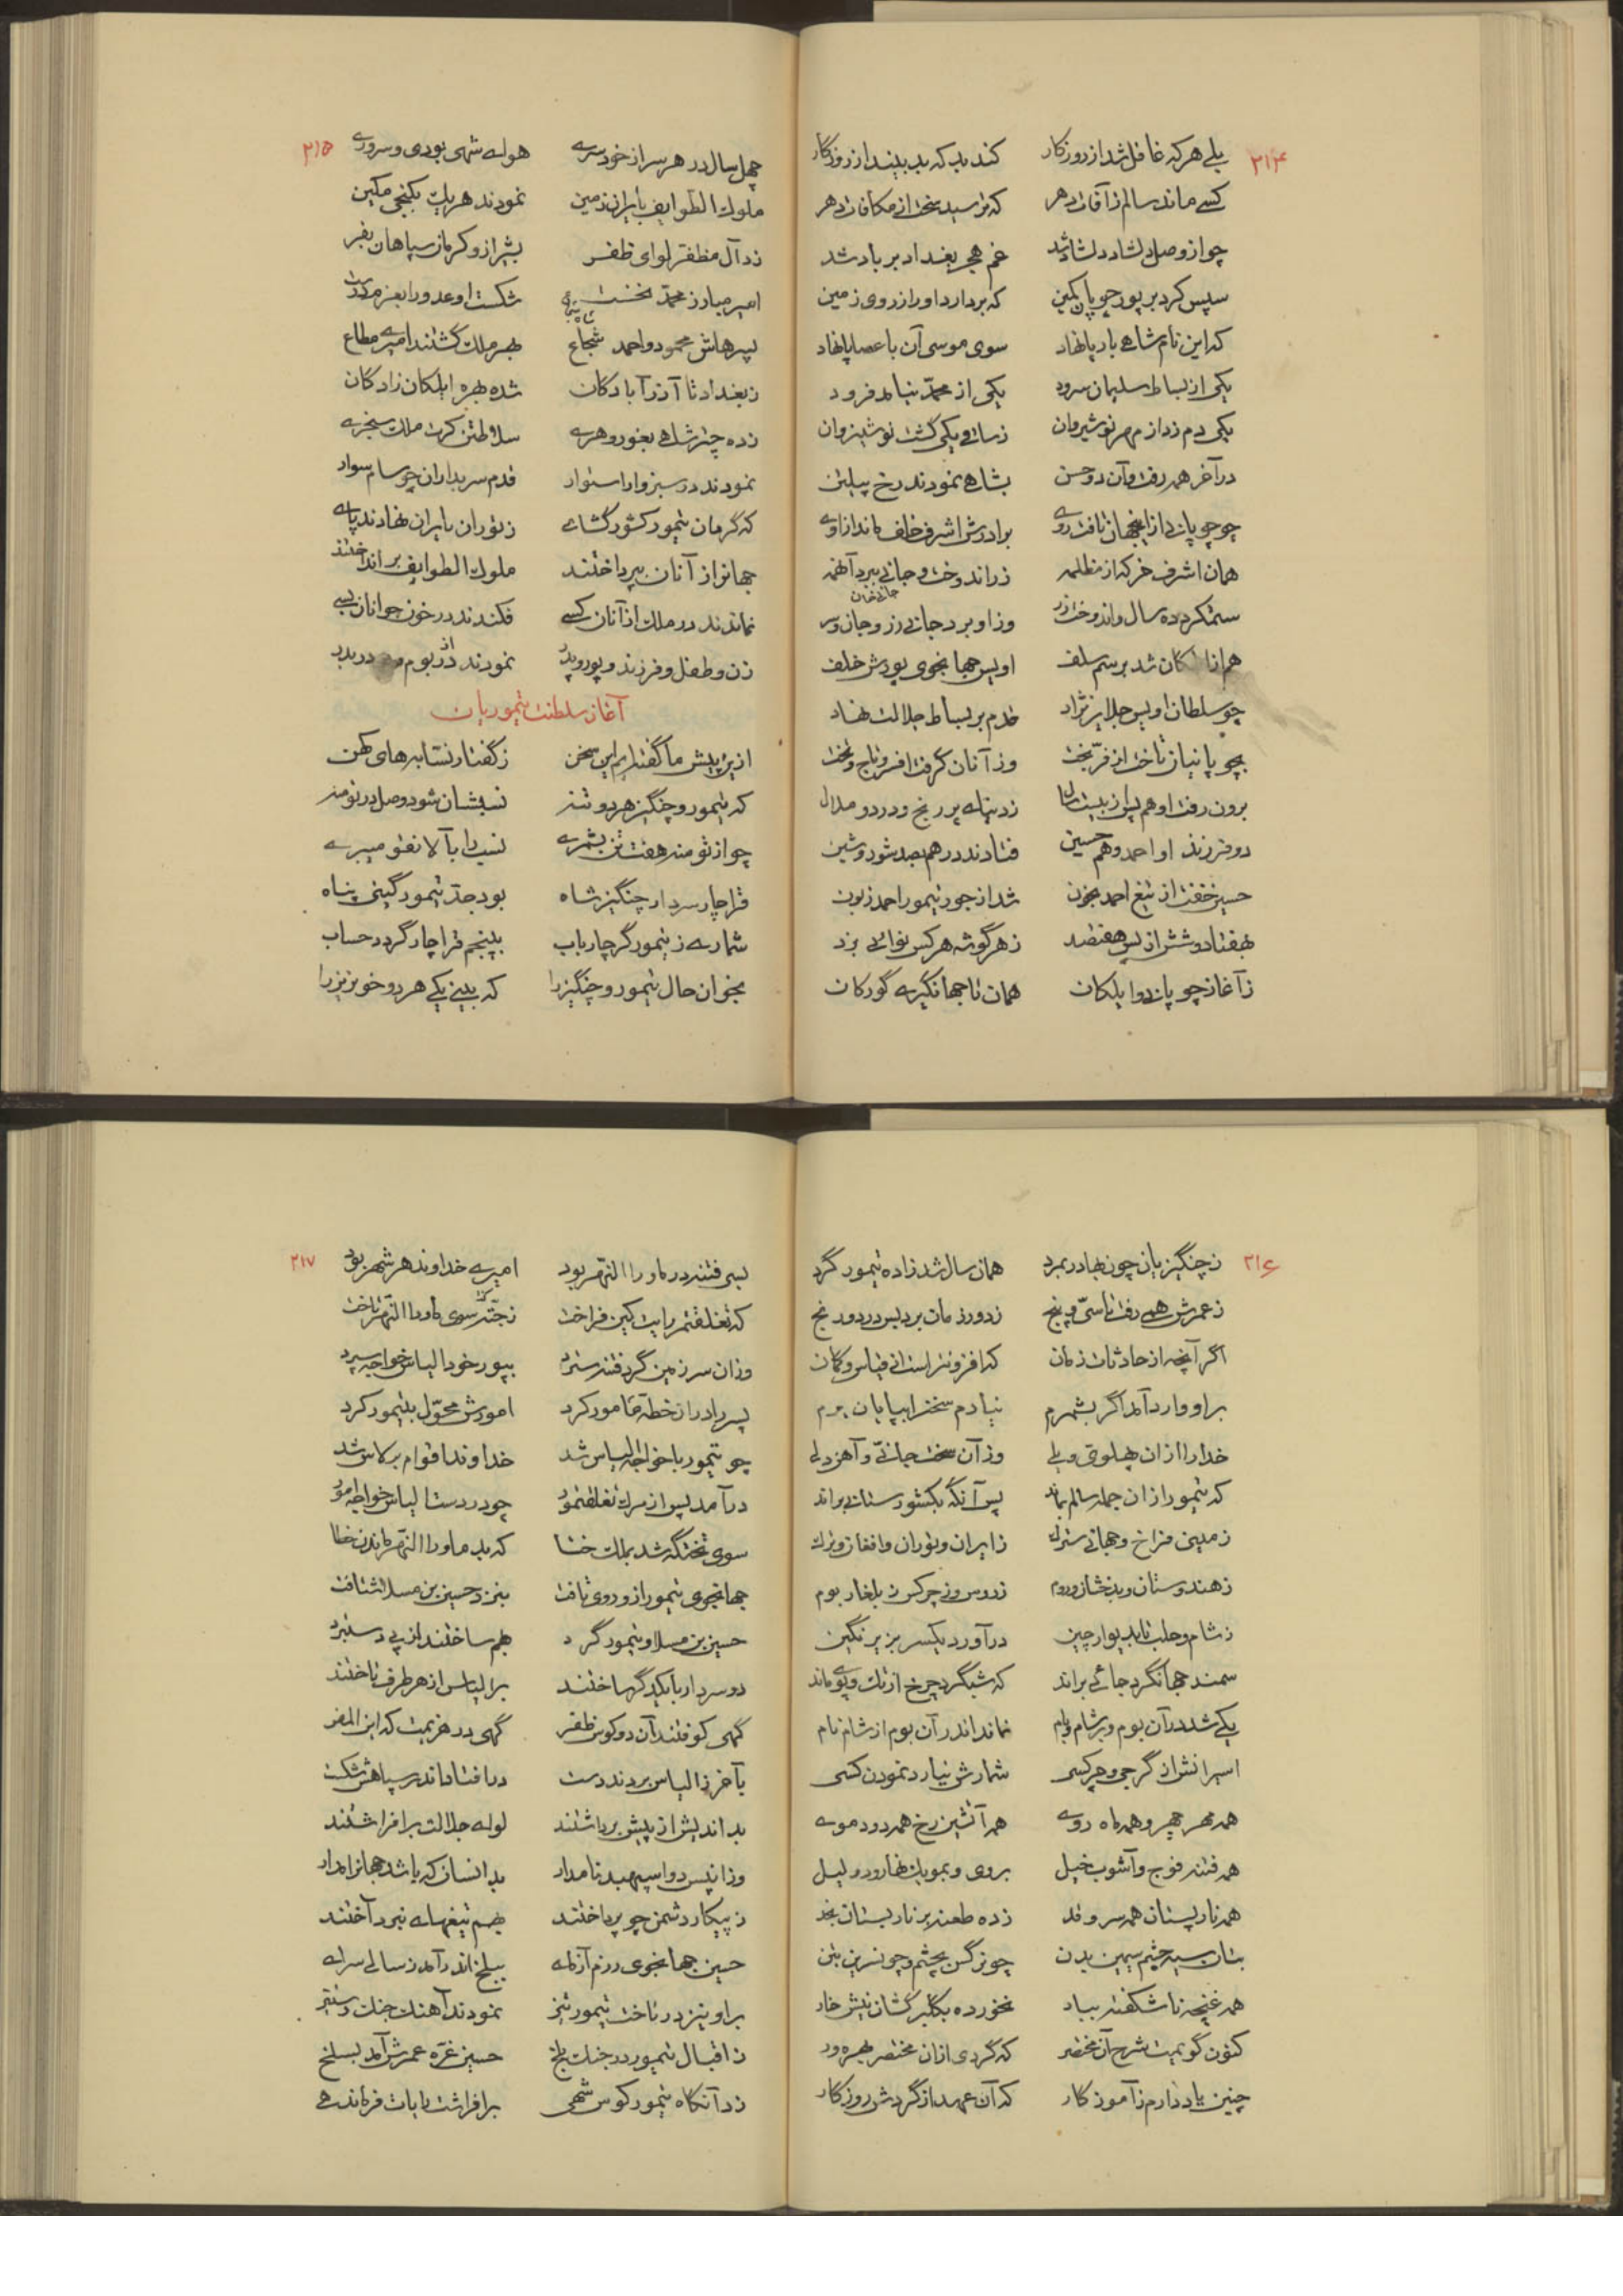 ۲۱۴
بلی هر که غافل شد از روزگار کند بد که بد بیند از روزگار
کسی ماند سالم ز آفات دهر که ترسید سخت از مکافات دهر
چو از وصل دلشاد دلشاد شد غم هجر بغداد بر باد شد
سپس کرد بر پور چوپان کمین که بردارد او را ز روی زمین
که این نام شاهی بار پا نهاد سوی موسی آن با عصا پا نهاد
یکی از بساط سلیمان سرود یکی از محمد بنالد فرود
یکی دم زد از مهر نوشیروان ز ساتی یکی گشت نوشیروان
در آخر همه رفت و آن دو حسن بشاهی نمودند رخ پیلتن
چو چوپانی از اینجهان تافت روی برادرش اشرف خلف ماند از اوی
همان اشرف خر که از مظلمه زر اندوخت و جانی ببرد آنهمه
ستم کرد ده سال و اندوخت زر وز او برد جانی زر و جان و سر
جانی خان
هم از ایلکان شد برسم سلف اویس جهانجوی پورش خلف
چو سلطان اویس جلایر نژاد قدم بر بساط جلالت نهاد
بچوپانیان تاخت از فرّ بخت وز آنان گرفت افسر و تاج و تخت
برون رفت او هم پس از بیست سال ز دنیای پر رنج و درد و ملال
دو فرزند او احمد و هم حسین فتادند در هم بصد شور و شین
حسین خفت از تیغ احمد بخون شد از جور تیمور احمد زبون
بهفتاد و شش از پس هفتصد ز هر گوشه هر کس نوائی بزد
ز آغاز چوپانی و ایلکان همان تا جهانگیری گورکان
۲۱۵
چهل سال در هر سر از خودسری هوای شهی بودی و سروری
ملوک الطوایف بایران زمین نمودند هر یک بکنجی مکین
زد آل مظفر لوای ظفر بشیراز و کرمان سپاهان بفر
امیر مبارز محمد نخست شکست او عدو را بعزم درست
پسرهاش محمود و احمد شجاع بهر ملک گشتند امیری مطاع
ز بغداد تا آذرآبادگان شده بهره ایلکان زادگان
زده چتر شاهی بغور و هری سلاطین کرت ملک سنجری
نمودند در سبزوار استوار قدم سربداران چو سام سوار
که گرمان تیمور کشورگشای ز توران بایران نهادند پای
جهان را از آنان بپرداختند ملوک الطوایف برانداختند
نماندند در ملک از آنان کسی فکندند در خون جوانان بسی
زن و طفل و فرزند و پور و پدر نمودند از بوم و بر در بدر
آغاز سلطنت تیموریان
ازین پیش ما گفته‌ایم این سخن ز گفتار نسابه‌های کهن
که تیمور و چنگیز هر دو تنه نسبشان شود وصل در تومنه
چو از تومنه هفت تن بشمری نسب را بآلانقو میبری
قراچار سردار چنگیز شاه بود جد تیمور گیتی پناه
شماری ز تیمور گر چار باب بپنجم قراچار گردد حساب
بخوان حال تیمور و چنگیز را که بینی یکی هر دو خونریز را
۲۱۶
ز چنگیزیان چون بهادر بمرد همان سال شد زاده تیمور گرد
ز عمرش همی رفت تا سی و پنج ز دور زمان برد بس درد و رنج
اگر آنچه از حادثات زمان که افزونتر است از قیاس و گمان
بر او وارد آمد اگر بشمرم نیارم سخن را بپایان برم
خدا را از آن پهلوی و یلی وز آن سخت جانی و آهن دلی
که تیمور از آن جمله سالم بماند پس آنگه بکشورستانی براند
زمینی فراخ و جهانی سترک ز ایران و توران و افغان و ترک
ز هندوستان و بدخشان و روم ز روس و ز چرکس ز بلغار بوم
ز شام و حلب تا بدیوار چین درآورد یکسر بزیر نگین
سمند جهانگرد جائی براند که شبگرد چرخ از تک و پوی ماند
یکی شد در آن بوم و بر شام و بام نماند اندر آن بوم از شام نام
اسیرانش از گرجی و چرکسی شمارش نیارد نمودن کسی
همه مهر چهر و همه ماه روی همه آتشین رخ همه دود موی
همه فتنه فوج و آشوب خیل بروی و بمو یک نهار و دو لیل
همه نار پستان همه سرو قد زده طعنه بر نار بستان بخد
بتان سیه چشم سیمین بدن چو نرگس بچشم و چو نسرین بتن
همه غنچه ناشکفته ببار نخورده بگلبرگشان نیش خار
کنون گویمت شرح آن مختصر که گردی از آن مختصر بهره‌ور
چنین یاد دارم ز آموزگار که آن عهد از گردش روزگار
۲۱۷
بسی فتنه در ماوراءالنهر بود امیری خداوند هر شهر بود
که تغلقتمر رایت کین فراخت ز جته سوی ماوراءالنهر تاخت
وزان سرزمین گرد فتنه سترد بپور خود الیاس خواجه سپرد
پسر را در آن خطه مأمور کرد امورش محول بتیمور کرد
چو تیمور با خواجه الیاس شد خداوند اقوام برلاس شد
درآمد پس از مرگ تغلقتمور چو در دست الیاس خواجه امور
سوی تختگه شد بملک ختا که بد ماوراءالنهر ماندن خطا
جهانجوی تیمور ازو روی تافت بنزد حسین بن مسلا شتافت
حسین بن مسلا و تیمور گرد بهم ساختند از پی دستبرد
دو سردار با یکدگر ساختند بر الیاس از هر طرف تاختند
گهی کوفتند آن دو کوس ظفر گهی در هزیمت که این المفر
بآخر ز الیاس بردند دست درافتاد اندر سپاهش شکست
بداندیش از پیش برداشتند لوای جلالت برافراشتند
وزان پس دو اسپهبد نامدار بدانسان که باشد جهان را مدار
ز پیکار دشمن چو پرداختند بهم تیغهای نبرد آختند
حسین جهانجوی رزم آزمای ببلخ اندر آمد ز سالی سرای
بر او نیز درتاخت تیمور تیز نمودند آهنگ جنگ و ستیز
ز اقبال تیمور در جنگ بلخ حسین غره عمرش آمد بسلخ
زد آنگاه تیمور کوس شهی برافراشت رایات فرماندهی